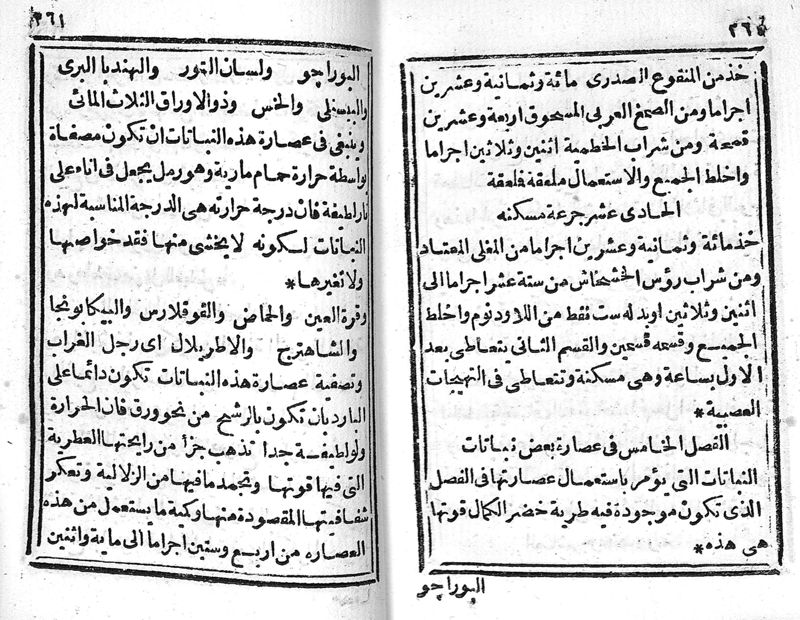 ٢٦٠
خذ من المنقوع الصدرى مائة وثمانية وعشرين
اجراما ومن الصمغ العربى المسحوق اربعة وعشرين
قمحة ومن شراب الخطمية اثنين وثلاثين اجراما
واخلط الجميع والاستعمال ملعقة فلعقة
الحادى عشر جرعة مسكنه
خذ مائة وثمانية وعشرين اجراما من المغلى المعتاد
ومن شراب رؤس الخشخاش من ستة عشر اجراما الى
اثنين وثلاثين او بدله ست نقط من اللاودنوم واخلط
الجميع وقسمه قسمين والقسم الثانى يتعاطى بعد
الاول بساعة وهى مسكنة وتتعاطى فى التهيجات
العصبية *
الفصل الخامس فى عصارة بعض نباتات
النباتات التى يؤمر باستعمال عصارتها فى الفصل
الذى تكون موجودة فيه طرية خضر الكمال قوتها
هى هذه *
البوراجو
٢٦١
البوراجو ولسان الثور والهندبا البرى
والبستنلى والخس وذو الاوراق الثلاث المائى
وينبغى فى عصارة هذه النباتات ان تكون مصفاة
بواسطة حرارة حمام مارية وهو رمل يجعل فى اناء على
نار لطيفة فان درجة حرارته هى الدرجة المناسبة لهذه
النباتات لكونه لا يخشى منها فقد خواصها
ولا تغيرها *
وقرة العين والحماض والقوقلارس والبيكابونجا
والشاهترج والاطريلال اى رجل الغراب
وتصفية عصارة هذه النباتات تكون دائما على
البارد بان تكون بالرشح من نحو ورق فان الحرارة
ولو لطيفة جدا تذهب جزأ من رايحتها العطرية
التى فيها قوتها وتجمد ما فيها من الزلالية وتعكر
شفافيتها المقصودة منها وكمية ما يستعمل من هذه
العصاره من اربع وستين اجراما الى ماية واثنين